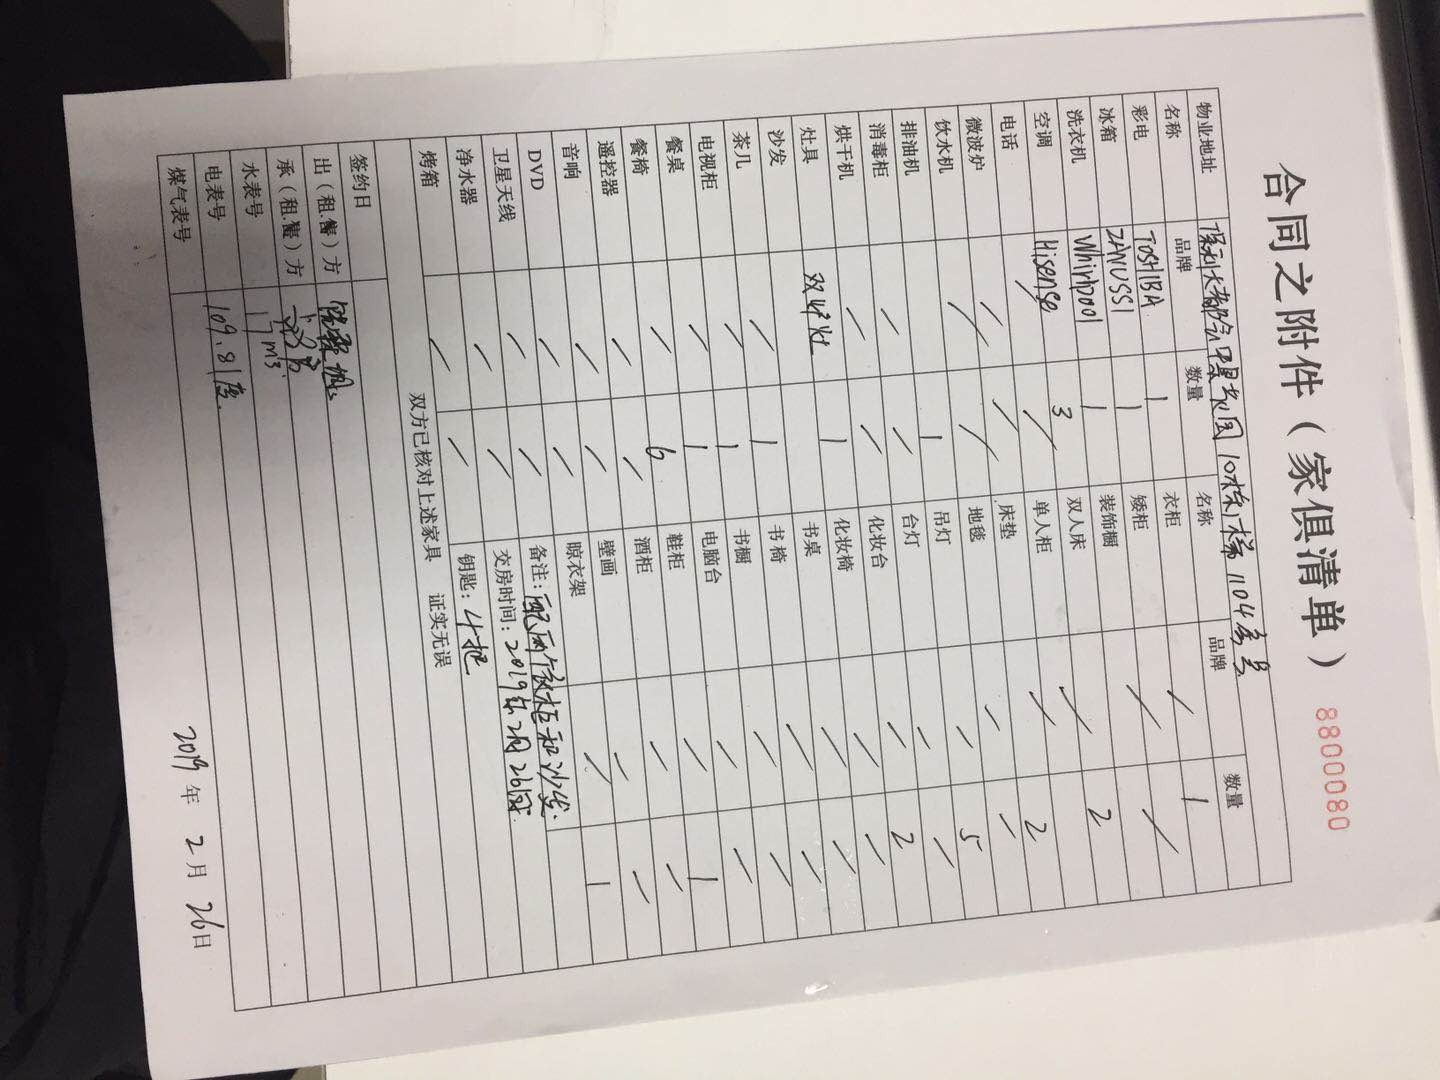 合同之附件（家俱清单） 8800080
物业地址 保利大都会翠景花园10栋1梯1104房号
名称 品牌 数量 名称 品牌 数量
彩电 TOSHIBA 1 衣柜 / 1
冰箱 ZANUSSI 1 矮柜 / /
洗衣机 Whirlpool 1 装饰橱
空调 Hisense 3 双人床 / 2
电话 / 单人柜 /
微波炉 / / 床垫 / 2
饮水机 / / 地毯 / /
排油机 1 吊灯 / 5
消毒柜 / / 台灯 / /
烘干机 / / 化妆台 / 2
灶具 双炉灶 1 化妆椅 / /
沙发 / 书桌 / /
茶几 / 1 书椅 / /
电视柜 / 1 书橱 / /
餐桌 / 1 电脑台 / /
餐椅 / 6 鞋柜 / 1
遥控器 / / 酒柜 / /
音响 / / 壁画 / /
DVD / / 晾衣架 / 1
卫星天线 / / 备注：配两个衣柜和沙发.
净水器 / / 交房时间：2019年2月26日.
烤箱 / / 钥匙：4把
双方已核对上述家具 证实无误
签约日
出（租.售）方
承（租.售）方
水表号 17m3.
电表号 109.81度.
煤气表号
2019年2月26日